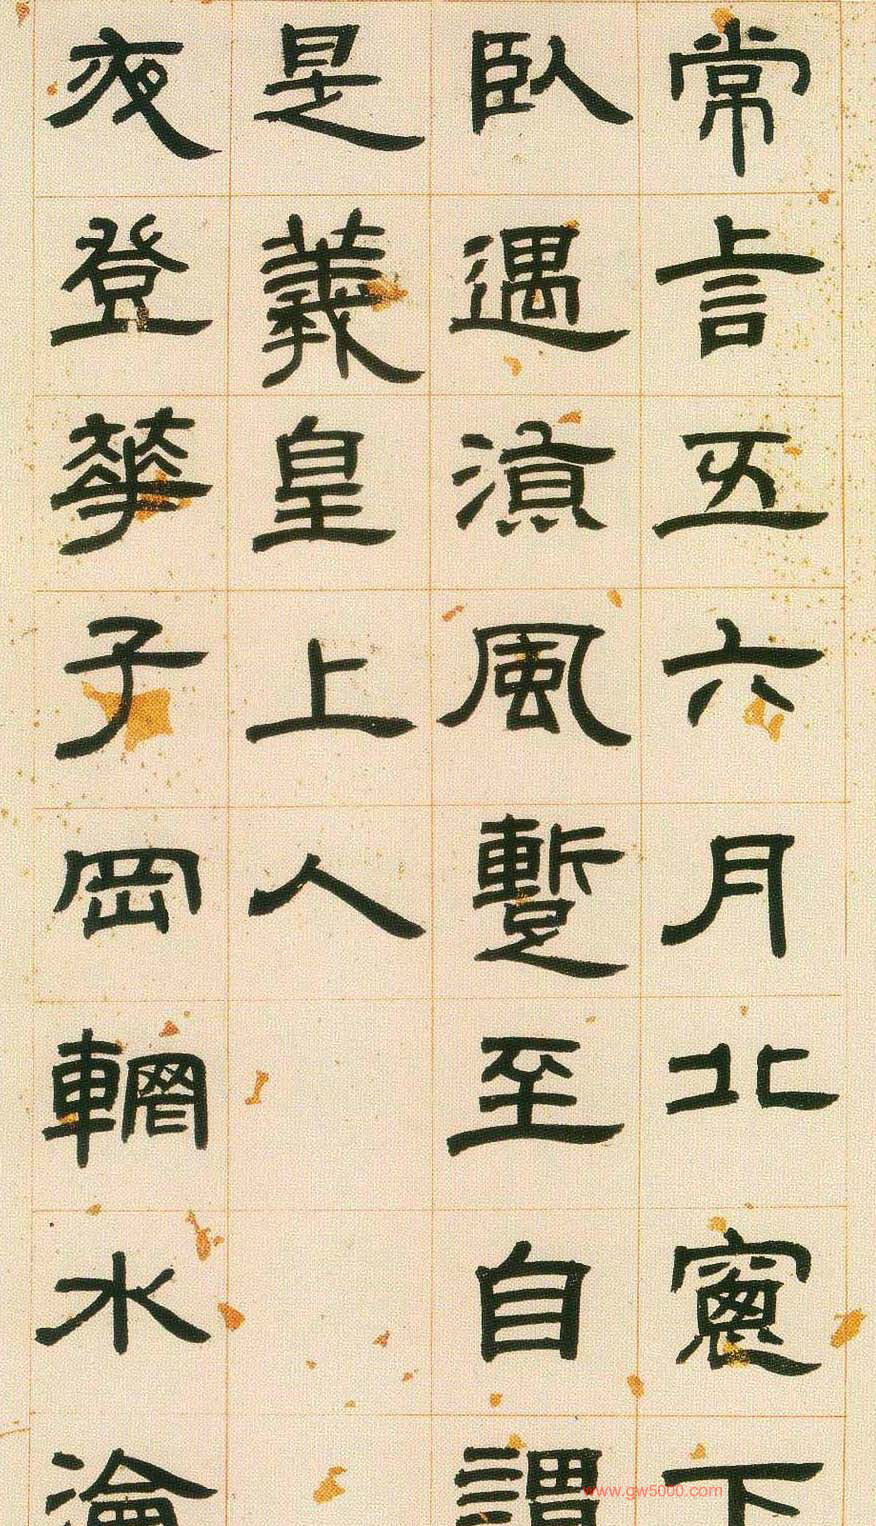 常言五六月北窻下
臥遇涼風暫至自謂
是羲皇上人
夜登華子岡輞水淪
www.gw5000.com